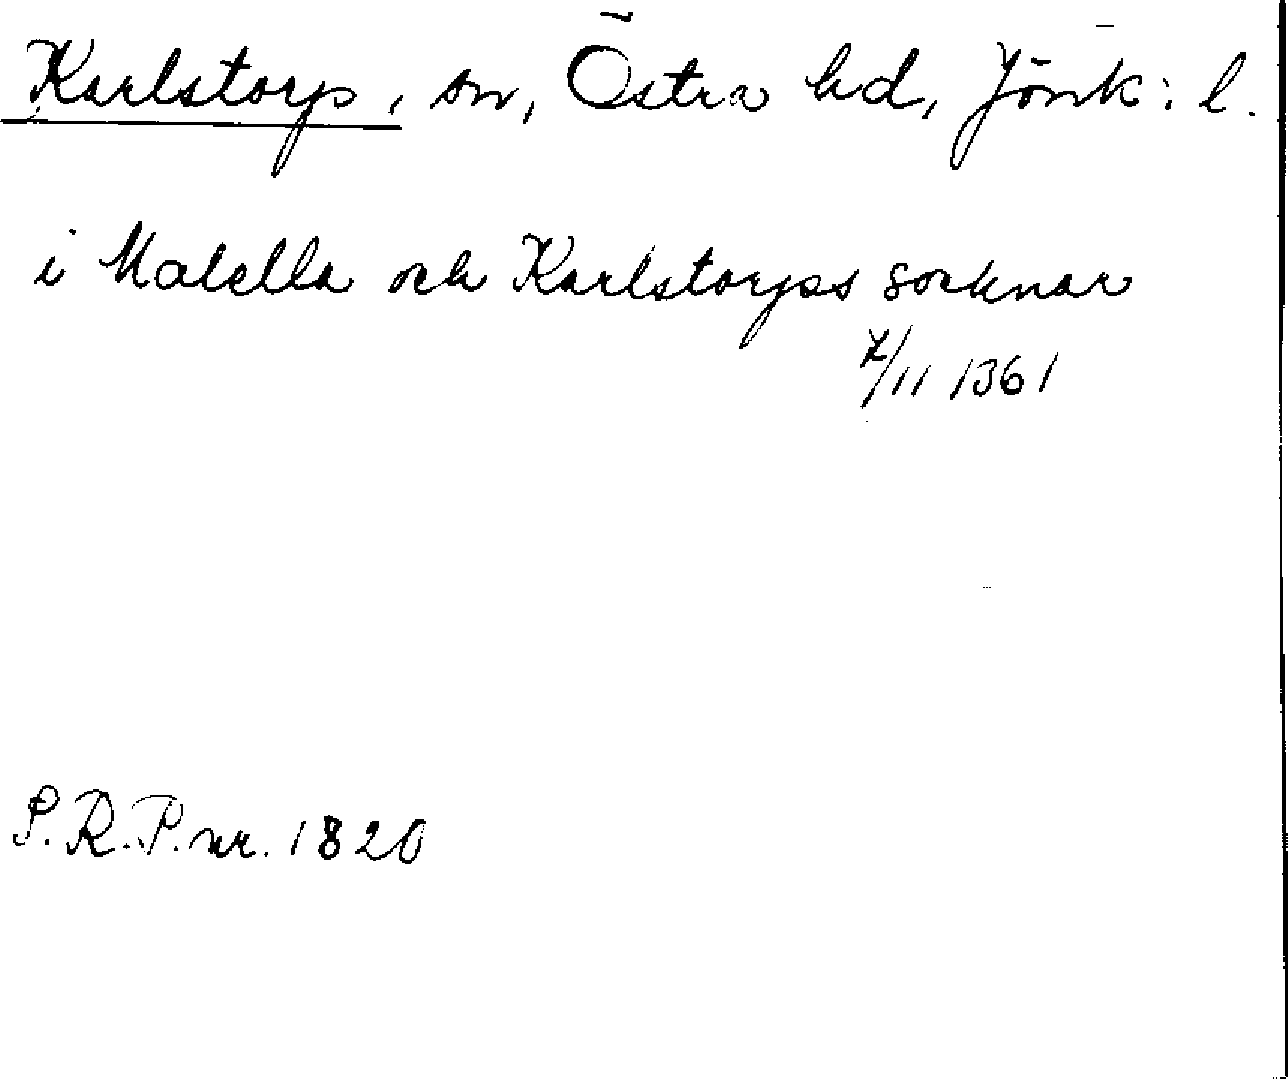 Karlstorp, sn, Östra hd, Jönk: l.
i Malella och Karlstorps socknar
7/11 1361
S.R.P. nr. 1820